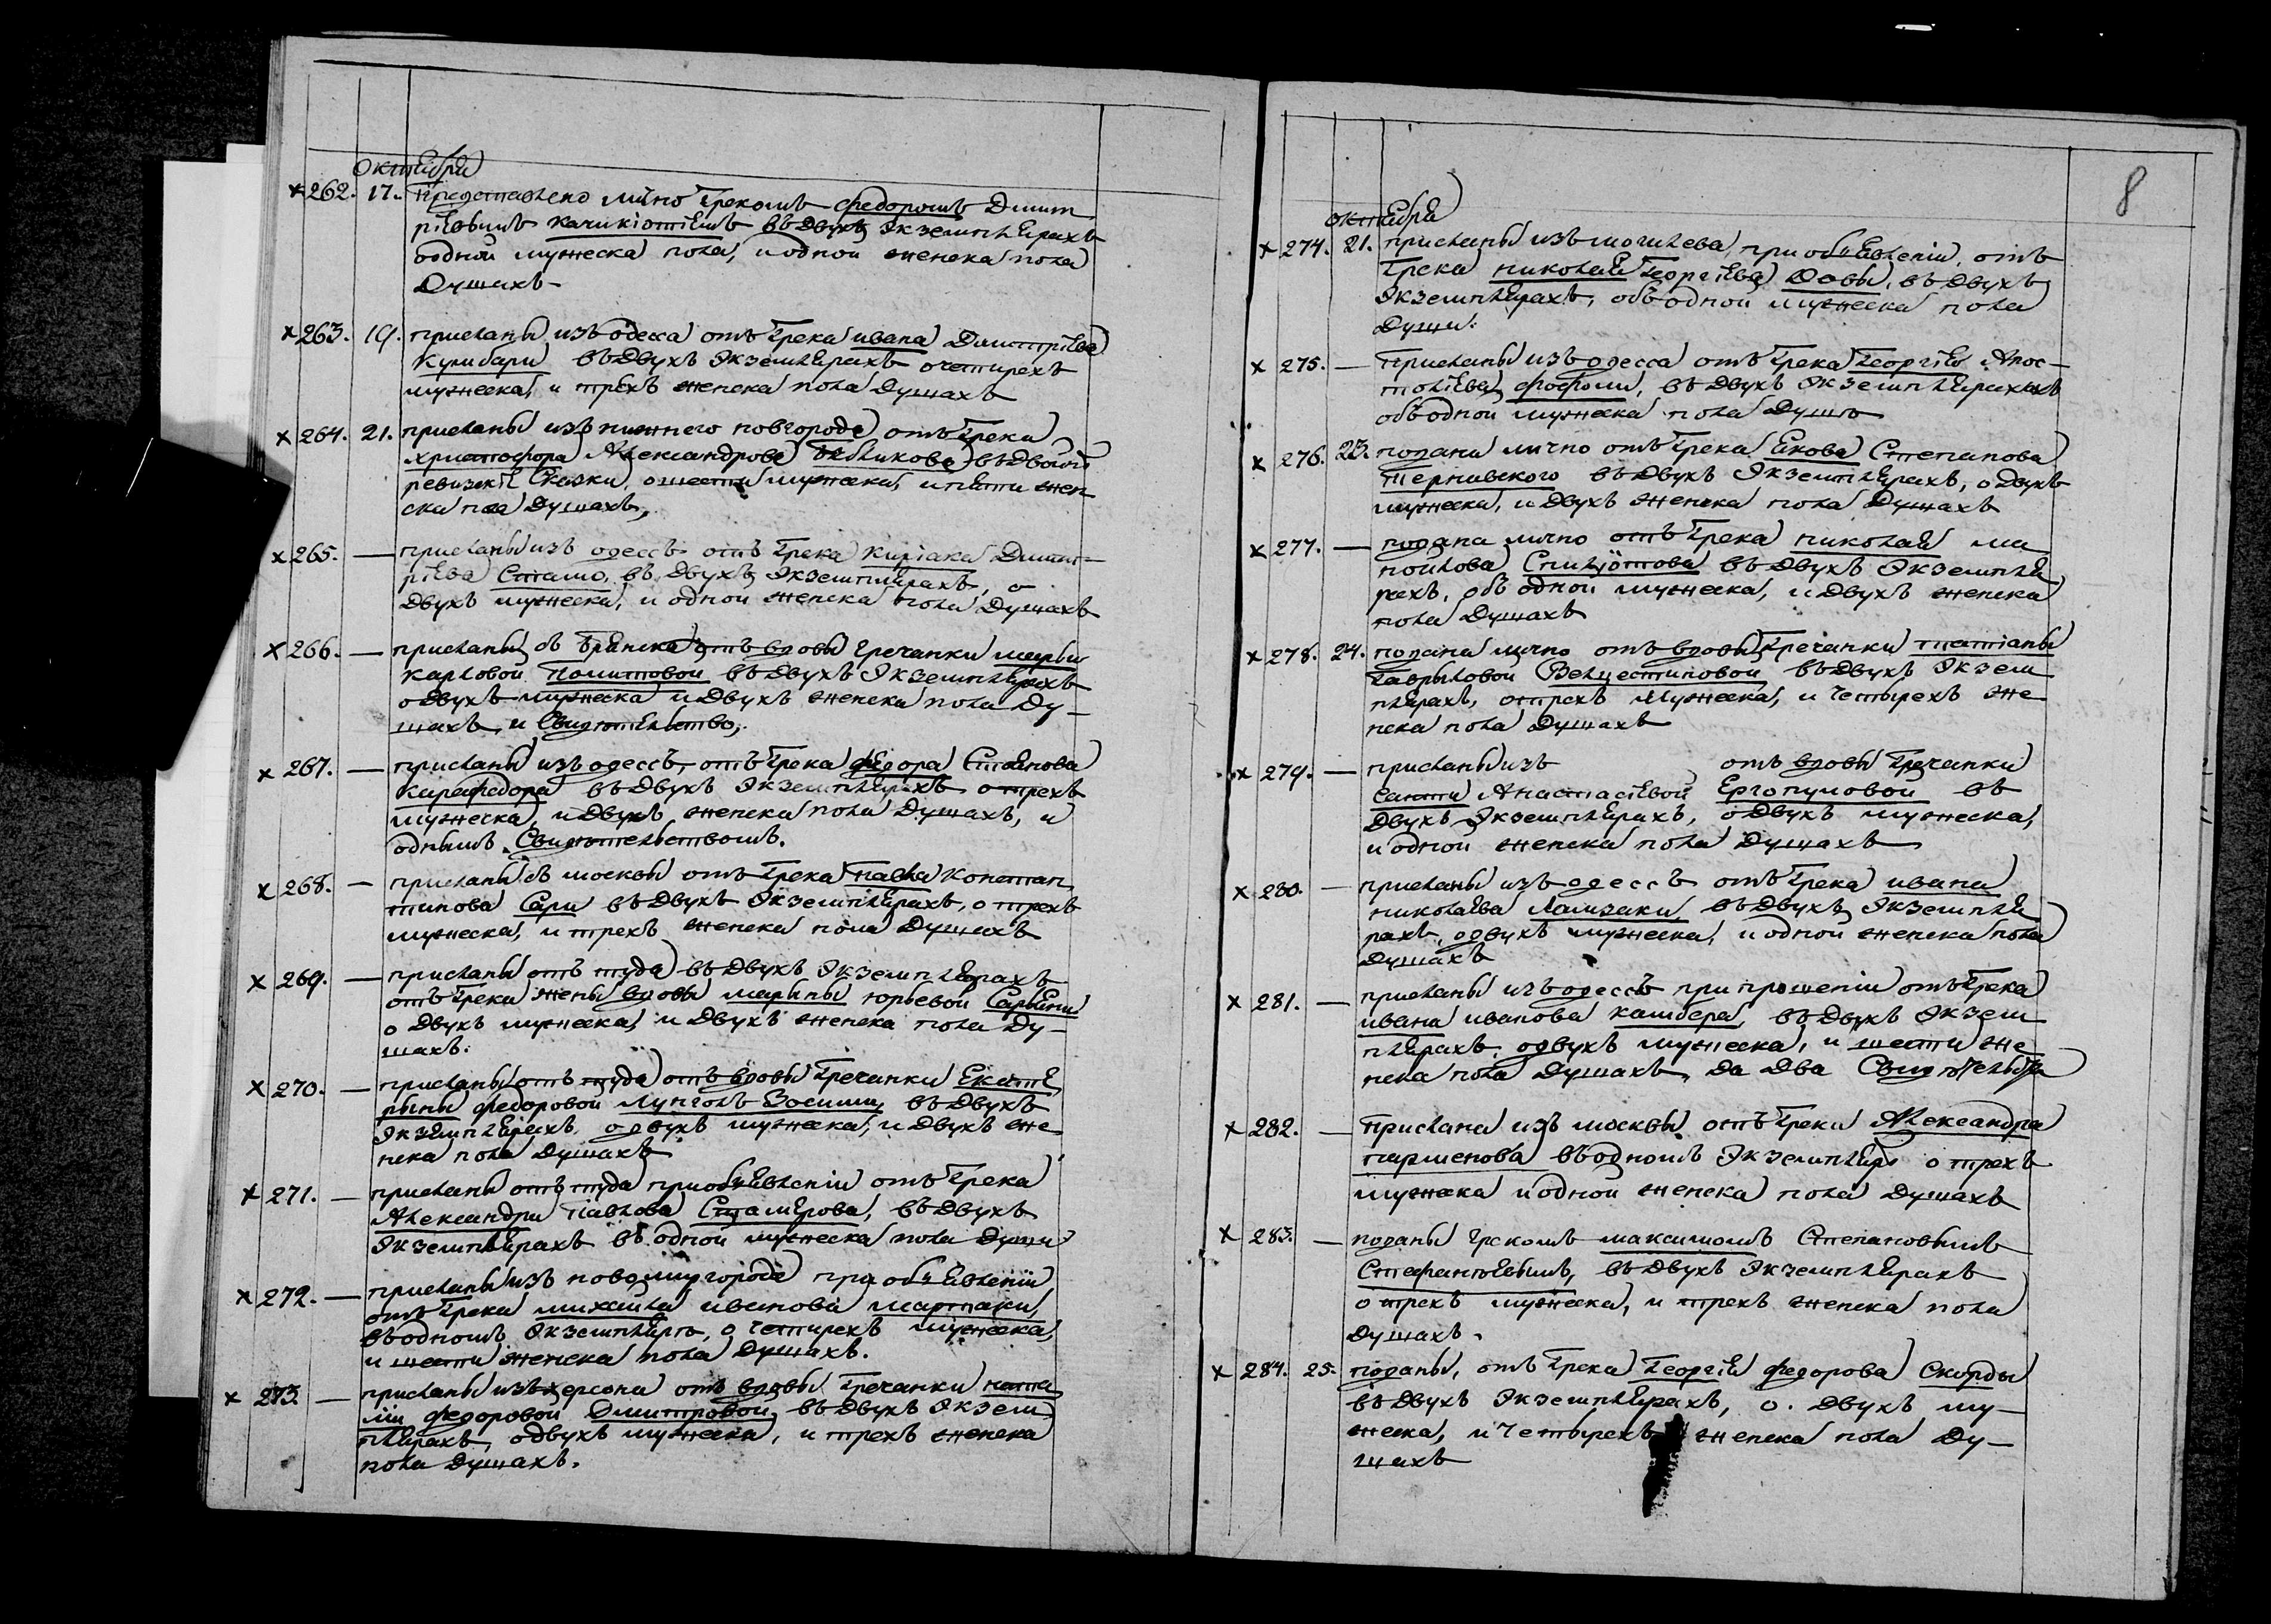 октября
×262. 17. Представлено лично Грекомъ Федоромъ Димит
ріевымъ Качикіотіемъ въ двухъ экземплярахъ
о одной мужеска пола, и одной женска пола
душахъ
×263. 19. присланы изъ одеса отъ Грека ивана Димитріева
Кумбари въ двухъ экземплярахъ очетирехъ
мужеска, и трехъ женска пола душахъ
×264. 21. присланы изъ нижнего новгорода отъ Грека
христофора Александрова въ двойй
ревизскѣ Сказки, о шести мужеска, и пяти жен
ска пола душахъ,
×265. — присланы изъ одессъ отъ Грека Киріака Димит-
ріева Стамо, въ двухъ экземплярахъ, о
двухъ мужеска, и одной женска пола душахъ
×266. — присланы съ брянска отъ вдовы гречанки марьи
Карловой въ двухъ экземплярахъ
о двухъ мужеска и двухъ женска пола ду-
шахъ, и Свидѣтельство,
×267. — присланы изъ одессъ, отъ Грека федора Стоянова
Карафедора въ двухъ экземплярахъ о трехъ
мужеска, и двухъ женска пола душахъ, и
однымъ Свидѣтельствомъ.
×268. — присланы съ москвы отъ Грека павла констан
тинова Сари въ двухъ экземплярахъ, о трехъ
мужеска, и трехъ женска пола душахъ
×269. — присланы отъ туда въ двухъ экземплярахъ
отъ Грека жены вдовы марыны юрьевой
о двухъ мужеска, и двухъ женска пола ду-
шахъ.
×270. — присланы отъ туда отъ вдовы Гречанки Екатѣ
рыны федоровой Зосими, въ двухъ
экземплярахъ, о двухъ мужеска, и двухъ же
нска пола душахъ
×271. — присланы отъ туда приобъявленіи отъ Грека
Александра павлова Стамерова, въ двухъ
экземплярахъ въ одной мужеска пола души
×272. — присланы изъ новомиргорода при объявленіи
отъ Грека михаила иванова мартаки,
въ одномъ экземплярѣ, о четирехъ мужеска,
и шести женска пола душахъ.
×273 — присланы изъ херсона отъ вдовы Гречанки ната
ліи федоровой Дмитровой, въ двухъ экзем
плярахъ, о двухъ мужеска, и трехъ женска
пола душахъ.
8
октября
×274. 21. присланы изъ могилева, при объявленіи, отъ
Грека николая Георгіева Довы, въ двухъ
экземплярахъ, объ одной мужеска пола
души.
×275. — Присланы изъ одесса отъ Грека Георгія Апос-
толіева, въ двухъ экземплярахъ
объ одной мужеска пола душѣ
×276. 23. подана лично отъ Грека Якова Степанова
Тернавского въ двухъ экземплярахъ, о двухъ
мужеска, и двухъ женска пола душахъ
×277. — подана лично отъ Грека николая ма
нойлова Спиліотова въ двухъ экземпля
рахъ, объ одной мужеска, и двухъ женска
пола душахъ
×278. 24. подана лично отъ вдовы Гречанки татіаны
Гавриловой въ двухъ экзем
плярахъ, о трехъ мужеска, и четырехъ же
нска пола душахъ
×279. — присланы изъ отъ вдовы Гречанки
Анастасіевой Ергопуловой въ
двухъ экземплярахъ, о двухъ мужеска,
и одной женска пола душахъ
×280. — присланы изъ одессъ отъ Грека ивана
николаева Ламзаки, въ двухъ экземпля
рахъ, о двухъ мужеска, и одной женска пола
душахъ
×281. — присланы изъ одессъ при прошеніи отъ Грека
ивана иванова камбера, въ двухъ экзем
плярахъ, о двухъ мужеска, и шести же
нска пола душахъ, да два Свидѣтельства
×282. — Прислана изъ москвы отъ Грека Александра
парменова въ одномъ экземплярѣ о трехъ
мужеска и одной женска пола душахъ
×283. — поданы грекомъ максимомъ Степановымъ
въ двухъ экземплярахъ
о трехъ мужеска, и трехъ женска пола
душахъ.
×284. 25. поданы, отъ Грека Георгія федорова Скорды
въ двухъ экземплярахъ, о. двухъ му-
жеска, и четырехъ женска пола ду-
шахъ